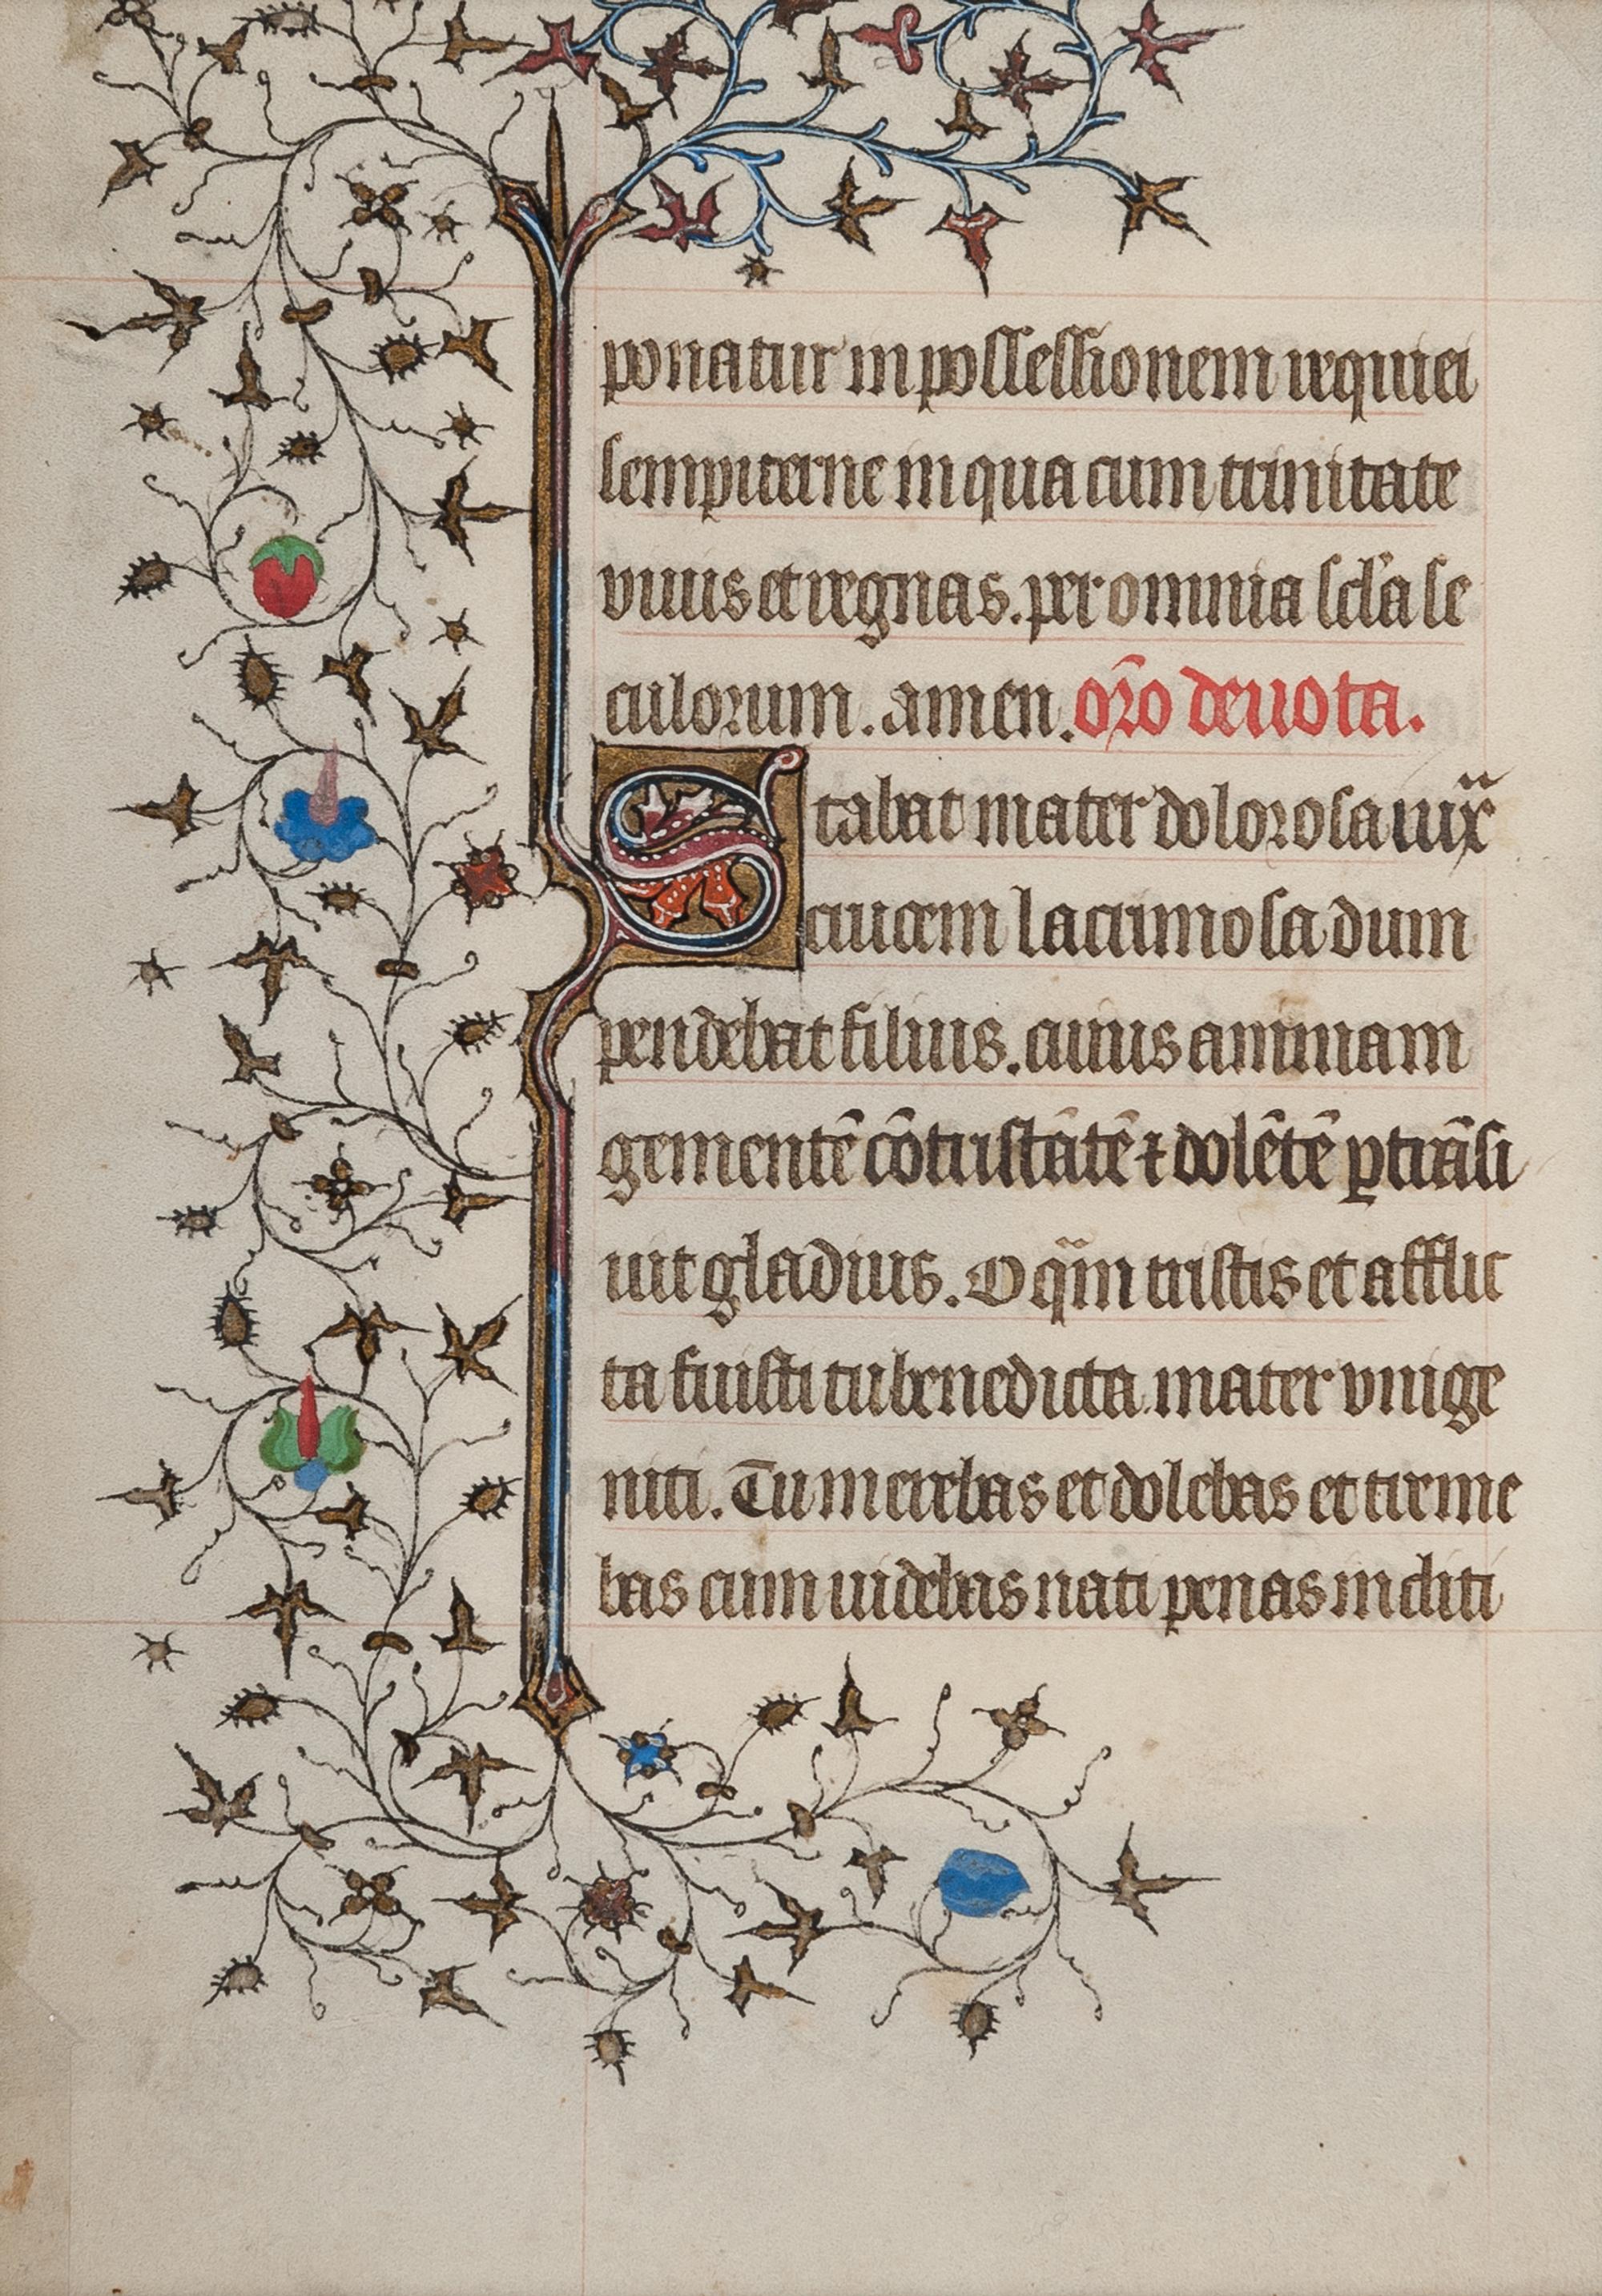 ponatur in possessionem requiei
sempiterne in qua cum trinitate
viuis et regnas. per omnia scl'a se
culorum. amen. or̄o deuota.
Stabat mater dolorosa iux̎
crucem lacrimosa dum
pendebat filius. cuius animam
gementē cōtristātē ⁊ dolētē ꝑtrāsi
uit gladius. O qm̄ tristis et afflic
ta fuisti tu benedicta mater vnige
niti. Tu merebas et dolebas et treme
bas cum uidebas nati penas incliti